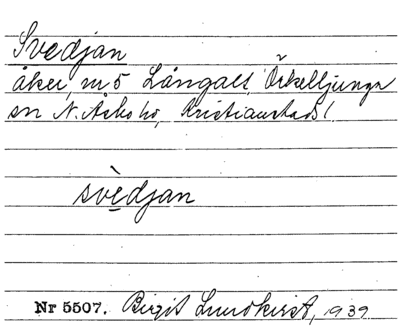 Svedjan
åker, m5 Långalt, Örkelljunga
sn N. Åsbo hd, Kristianstads l
svèdjan
Nr 5507. Birgit Lundkvist, 1939